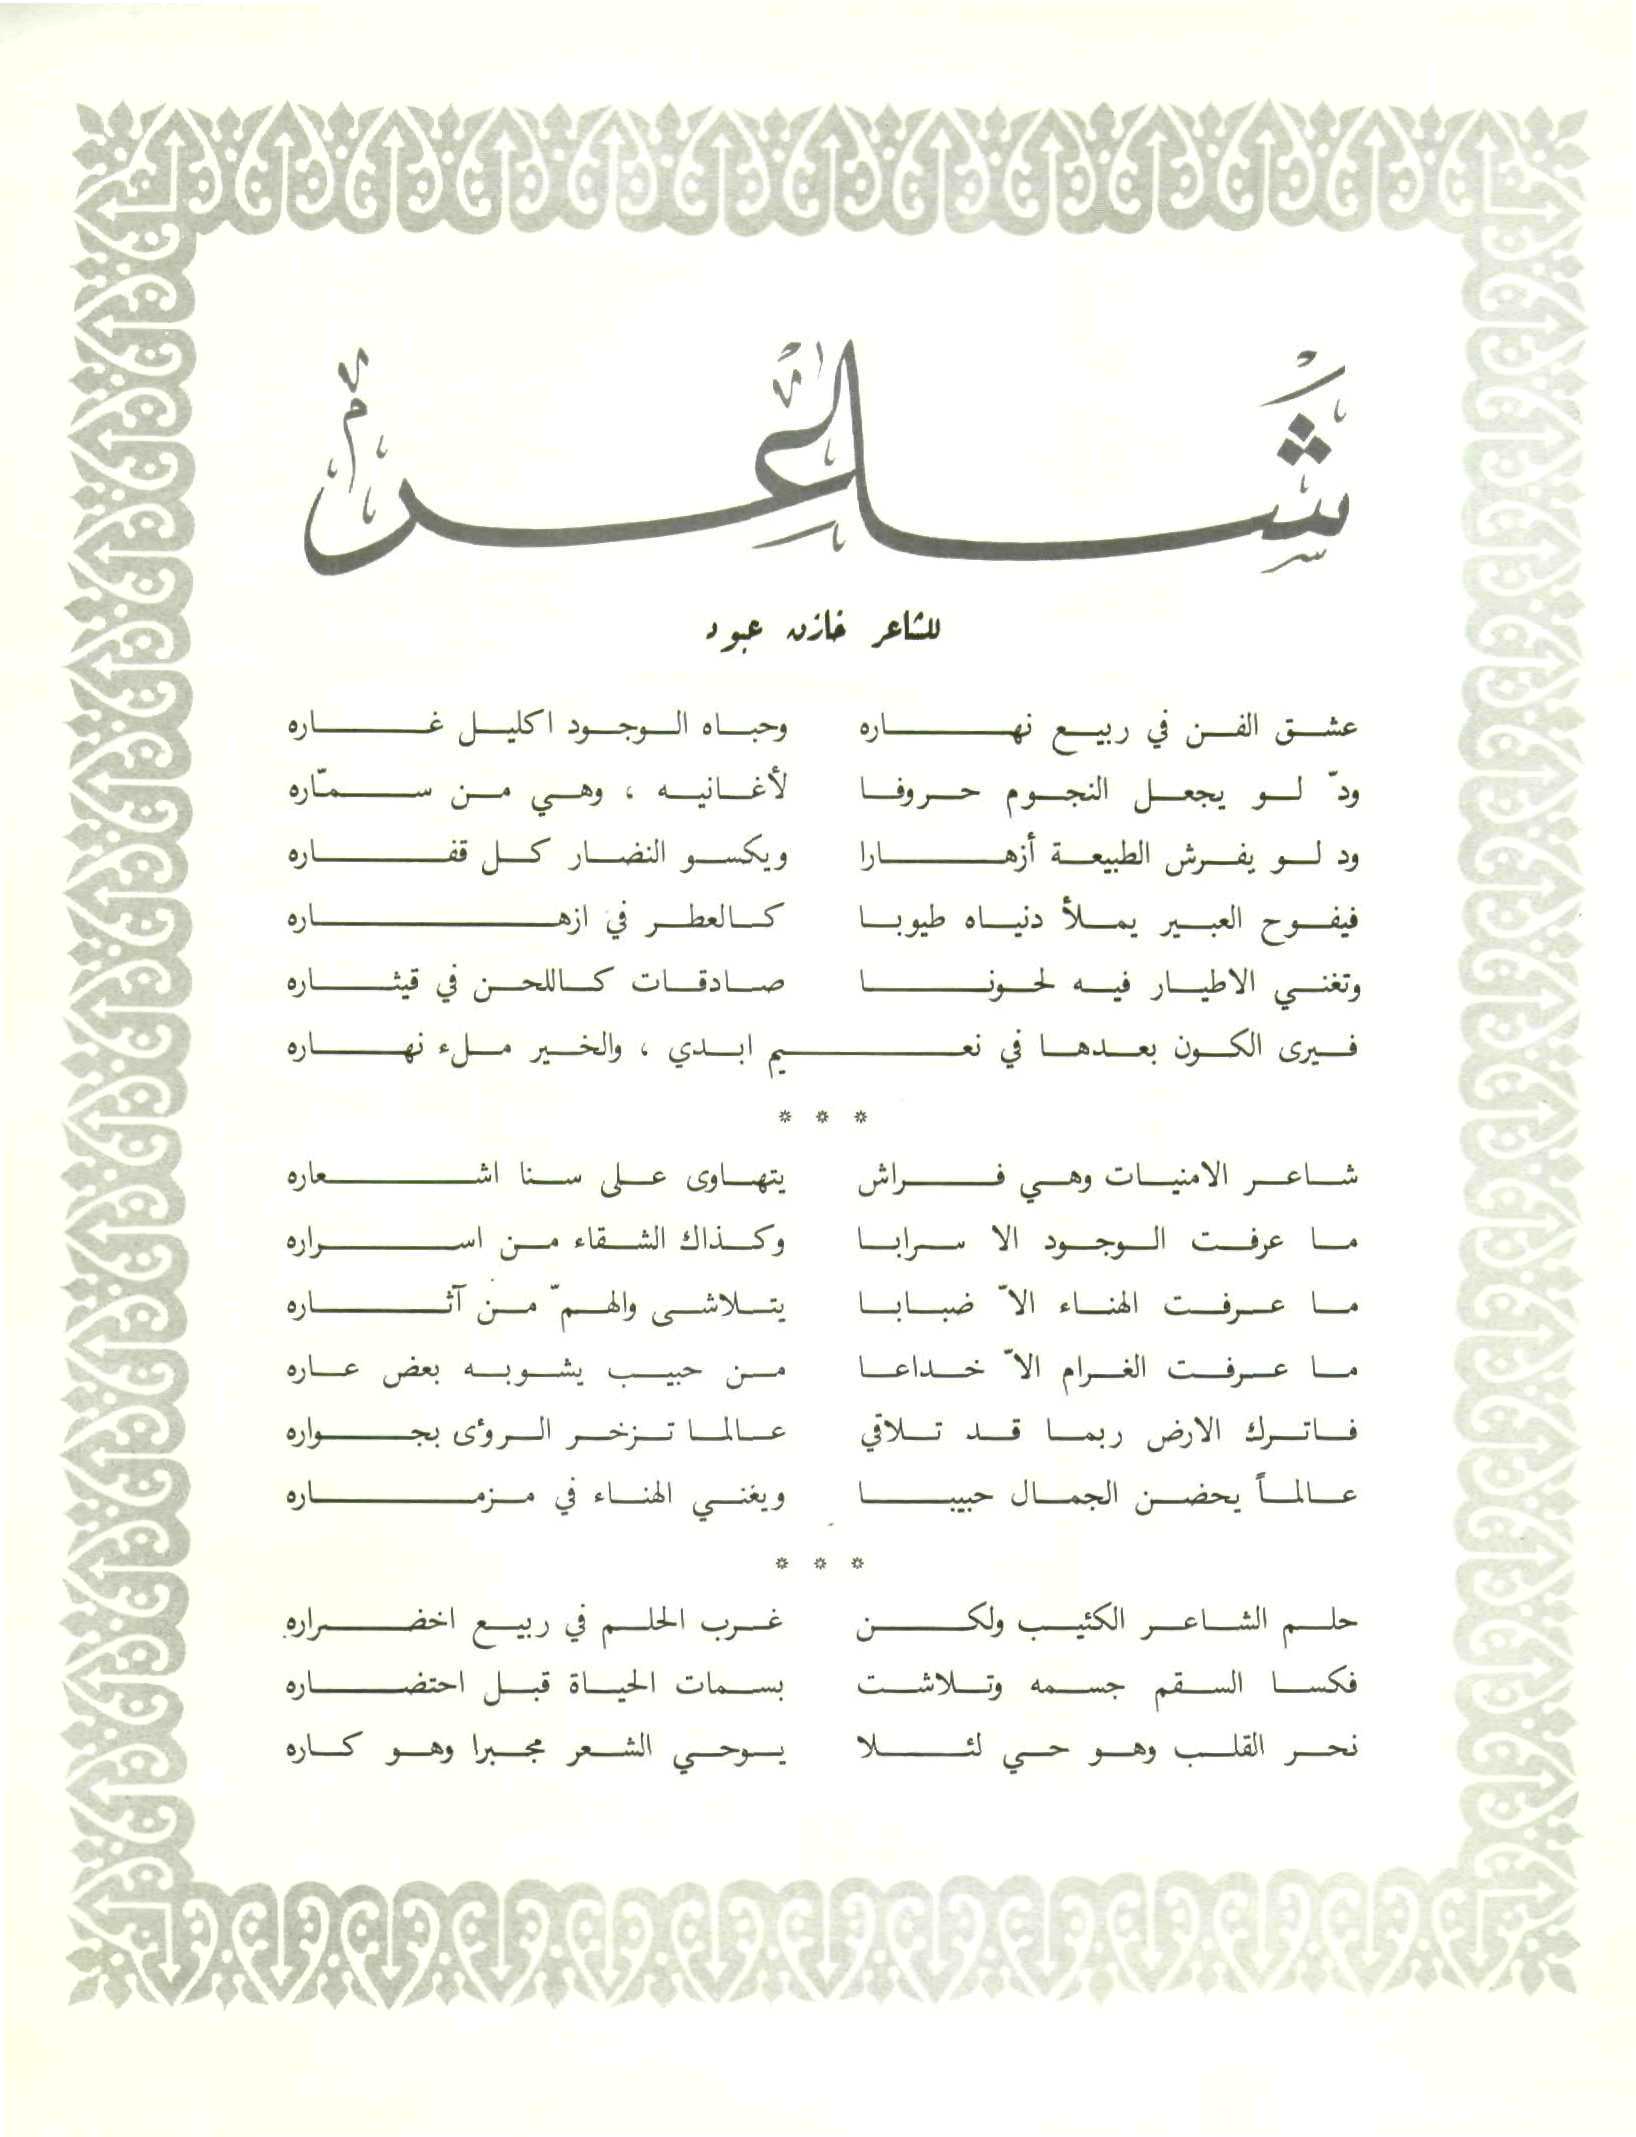 شاعر
للشاعر خازن عبود
عشق الفن في ربيع نهاره وحباه الوجود اكليل غاره
ودّ لو يجعل النجوم حروفا لأغانيه ، وهي من سمّاره
ود لو يفرش الطبيعة أزهارا ويكسو النضار كل قفاره
فيفوح العبير يملأ دنياه طيوبا كالعطر في ازهاره
وتغني الاطيار فيه لحونا صادقات كاللحن في قيثاره
فيرى الكون بعدها في نعيم ابدي ، والخير ملء نهاره
* * *
شاعر الامنيات وهي فراش يتهاوى على سنا اشعاره
ما عرفت الوجود الا سرابا وكذاك الشقاء من اسراره
ما عرفت الهناء الاّ ضبابا يتلاشى والهمّ من آثاره
ما عرفت الغرام الاّ خداعا من حبيب يشوبه بعض عاره
فاترك الارض ربما قد تلاقي عالما تزخر الرؤى بجواره
عالماً يحضن الجمال حبيبا ويغني الهناء في مزماره
* * *
حلم الشاعر الكئيب ولكن غرب الحلم في ربيع اخضراره
فكسا السقم جسمه وتلاشت بسمات الحياة قبل احتضاره
نحر القلب وهو حي لئلا يوحي الشعر مجبرا وهو كاره